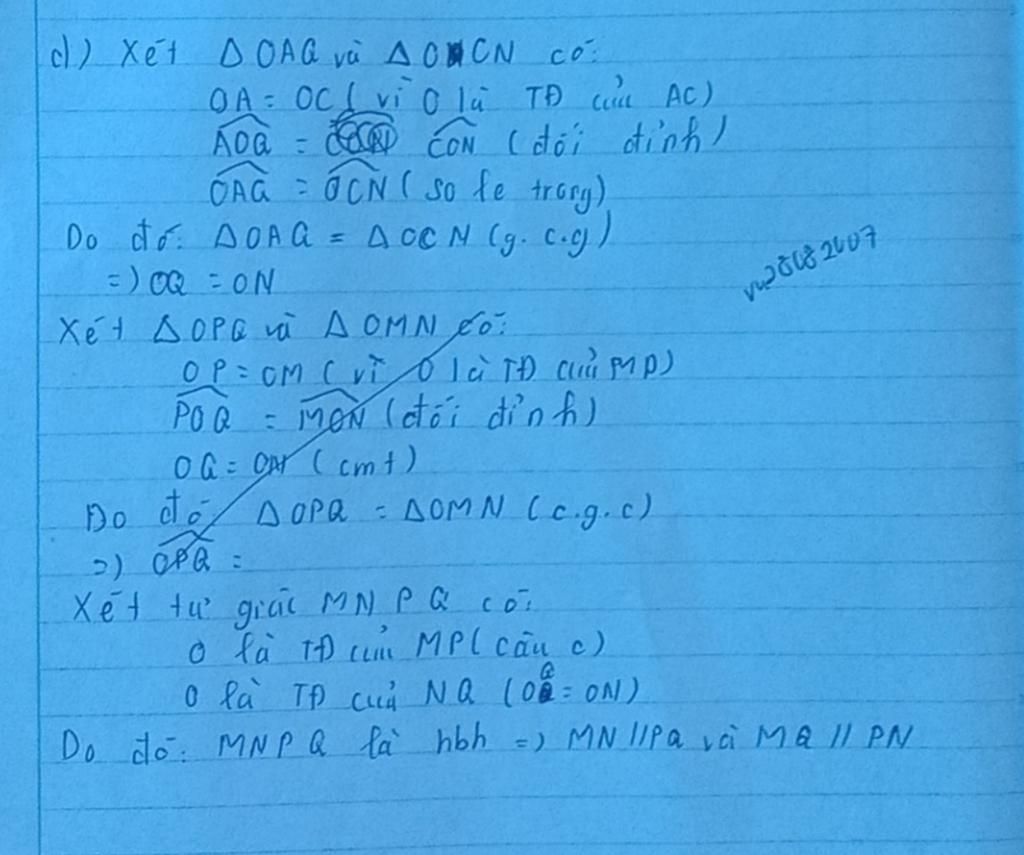 d) Xét ΔOAQ và ΔOCN có:
OA = OC (vì O là TĐ của AC)
AOQ = CON (đối đỉnh)
OAQ = OCN (so le trong)
Do đó: ΔOAQ = ΔOCN (g.c.g)
=) OQ = ON
Xét ΔOPQ và ΔOMN có:
OP = OM (vì O là TĐ của MP)
POQ = MON (đối đỉnh)
OQ = ON (cmt)
Do đó ΔOPQ = ΔOMN (c.g.c)
=) OPQ =
Xét tứ giác MNPQ có:
O là TĐ của MP (câu c)
O là TĐ của NQ (OQ = ON)
Do đó: MNPQ là hbh => MN // PQ và MQ // PN